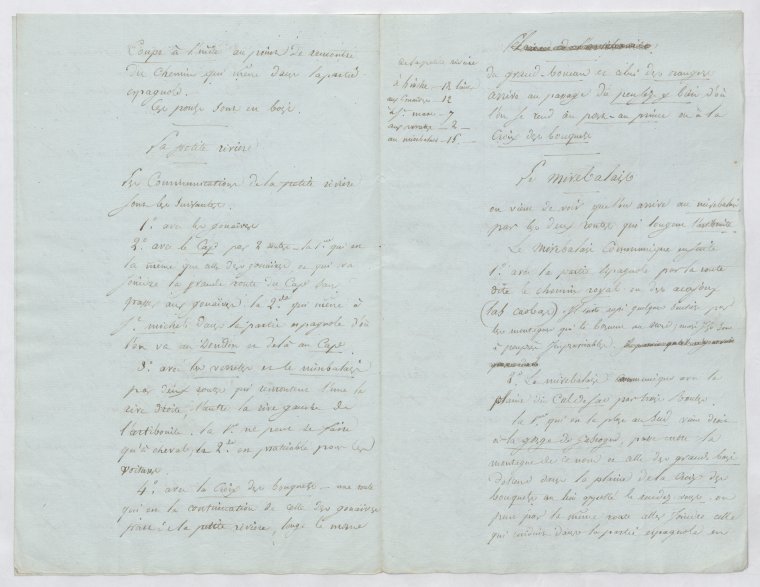 Coupe à l'unité au point de rencontre
du chemin qui mène dans la partie
espagnole.
Ces ponts sont en bois.
La petite rivière
Les Communications de la petite rivière
sont les suivantes.
1.° avec les gonaïves
2.° avec le Cap par 2 routes - la 1.re qui est
la même que celle des gonaïves et qui va
joindre la grande route du Cap
aux gonaïves. la 2.de qui mène à
S.t michel dans la partie espagnole d'où
l'on va au Dondon et delà au Cap.
3.° avec les verrettes et le mirebalais
par deux routes qui remontent l'une la
rive droite, l'autre la rive gauche de
l'artibonite. la 1.re ne peut se faire
qu'à cheval, la 2.de est praticable pour les
voitures.
4.° avec la Croix des bouquets - une route
qui est la continuation de celle des gonaïves
part de la petite rivière, longe le morne
de la petite rivière
aux gonaïves - 12
à S.t marc - 7
aux verrettes - 2
au mirebalais - 15
du grand boucan et celui des orangers
arrive au passage du
l'on se rend au port-au prince ou à la
Croix des bouquets
Le mirebalais
on vient de voir que l'on arrive au mirebalais
par les deux routes qui longent l'artibonite
Le mirebalais communique ensuite
1.° avec la partie espagnole par la route
dite le chemin royal
(las caobas). Il y a aussi quelques sentiers par
les montagnes qui le bornent au nord; mais ils sont
à peu près impraticables.
2.° Le mirebalais communique avec la
plaine du Cul de Sac par trois routes.
la 1.re qui est la plus au Sud vient droit
à la gorge de, passe entre la
montagne de ce nom et celle des grands bois
descend dans la plaine de la Croix des
bouquets au lieu appelé le rendez-vous. on
peut par la même route aller joindre celle
qui conduit dans la partie espagnole en